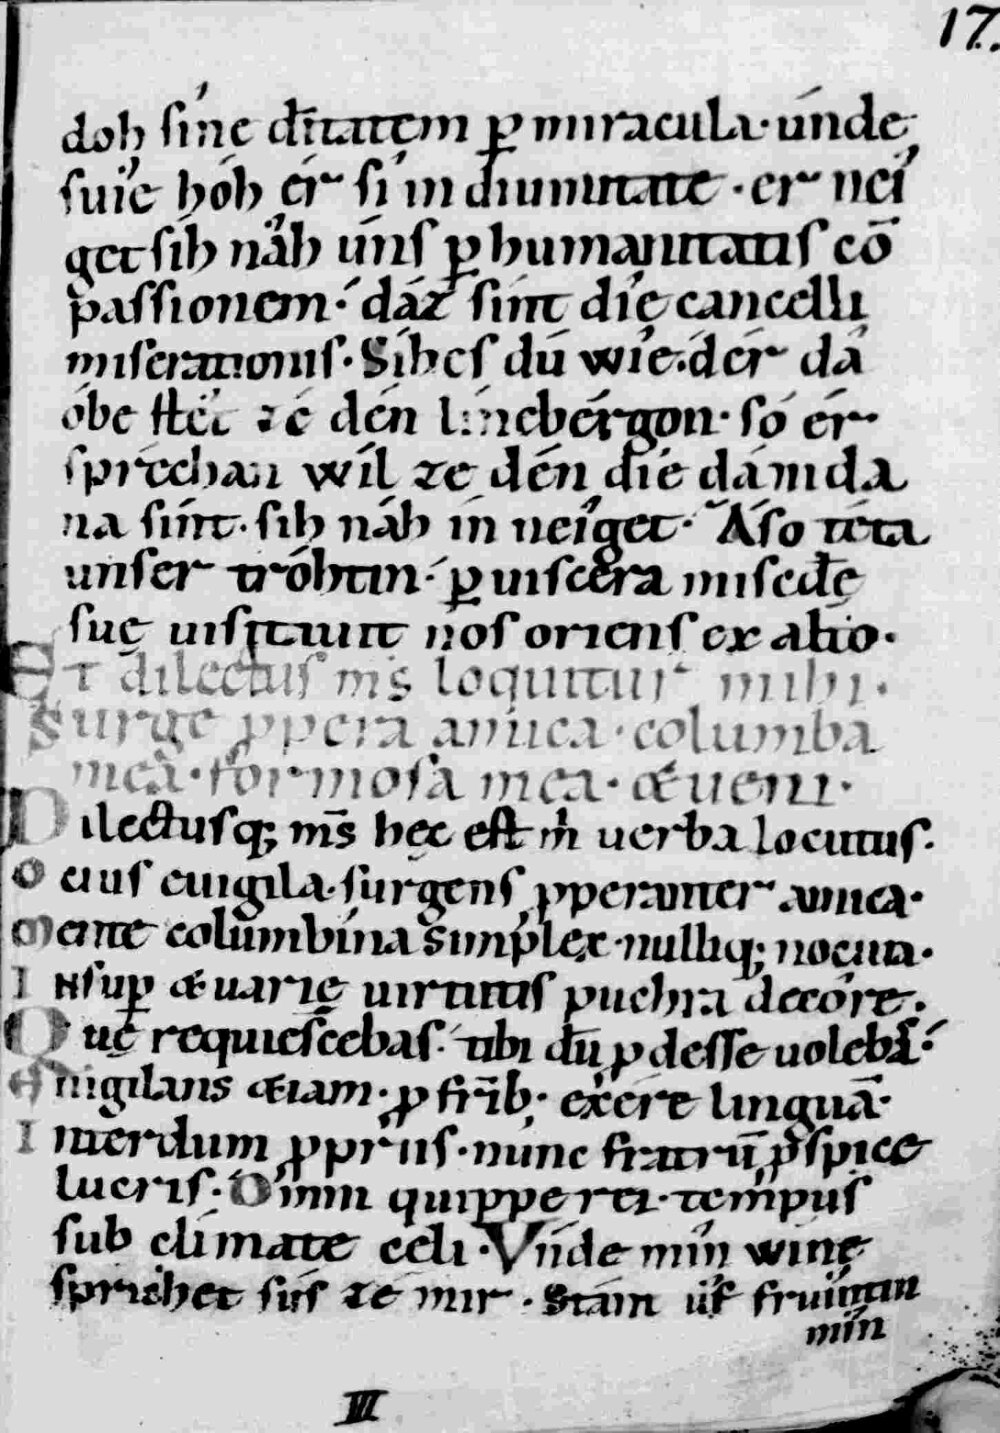 17.
doh sîne dīnitatem ꝑ miracula· únde
suîe hóh ér sî in diuinitate · er nei
get sîh nâh úns ꝑ humanitatis cō
passionem·́ dáz sint dîe cancelli
miserationis· Sîhes dú wîe der dâ
óbe stêt zé dén línebérgon· só ér
spréchan wíl ze dén dîe dâ nida
na sínt· sîh nâh in neíget· Áſo téta
únser tróhtin·́ ꝑ uiscera mīscdę
suę uisitauit nos oriens ex alto·
Et dilectus m̄s loquitur mihi·
Surge ꝓpera amica· columba
mea· formosa mea· & ueni·
Dilectusq; m̄s hęc est m̄ uerba locutus·
Ocius euigila· surgens ꝓperanter amica·
Mente columbina simplex· nulliq; nociua·
Insuꝑ & uarię uirtutis puchra decore·
Quę requiescebas· tibi dū ꝓdesse uolebā·́
Euigilans &iam· ꝓ fr̄ib; exere linguā·
Interdum ꝓpriis· nunc fratrū ꝓspice
lucris· Omni quippe rei· tempus
sub climate celi· Vnde mîn wine
sprichet sús zé mir· Stám ûf friuntin
mîn
III